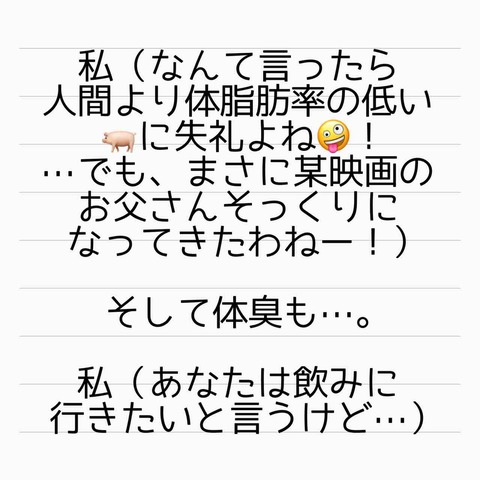 私（なんて言ったら
人間より体脂肪率の低い
🐖に失礼よね🤪！
…でも、まさに某映画の
お父さんそっくりに
なってきたわねー！）
そして体臭も…。
私（あなたは飲みに
行きたいと言うけど…）